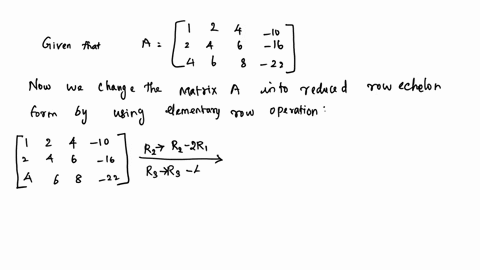 Given that A = [ 1 2 4 -10
2 4 6 -16
4 6 8 -22 ]
Now we change the matrix A into reduced row echelon
form by using elementary row operation:
[ 1 2 4 -10
2 4 6 -16
4 6 8 -22 ] R2→ R2-2R1
R3→R3 -4